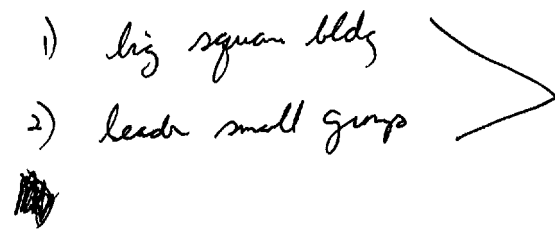 1) big square bldg
2) leader small groups